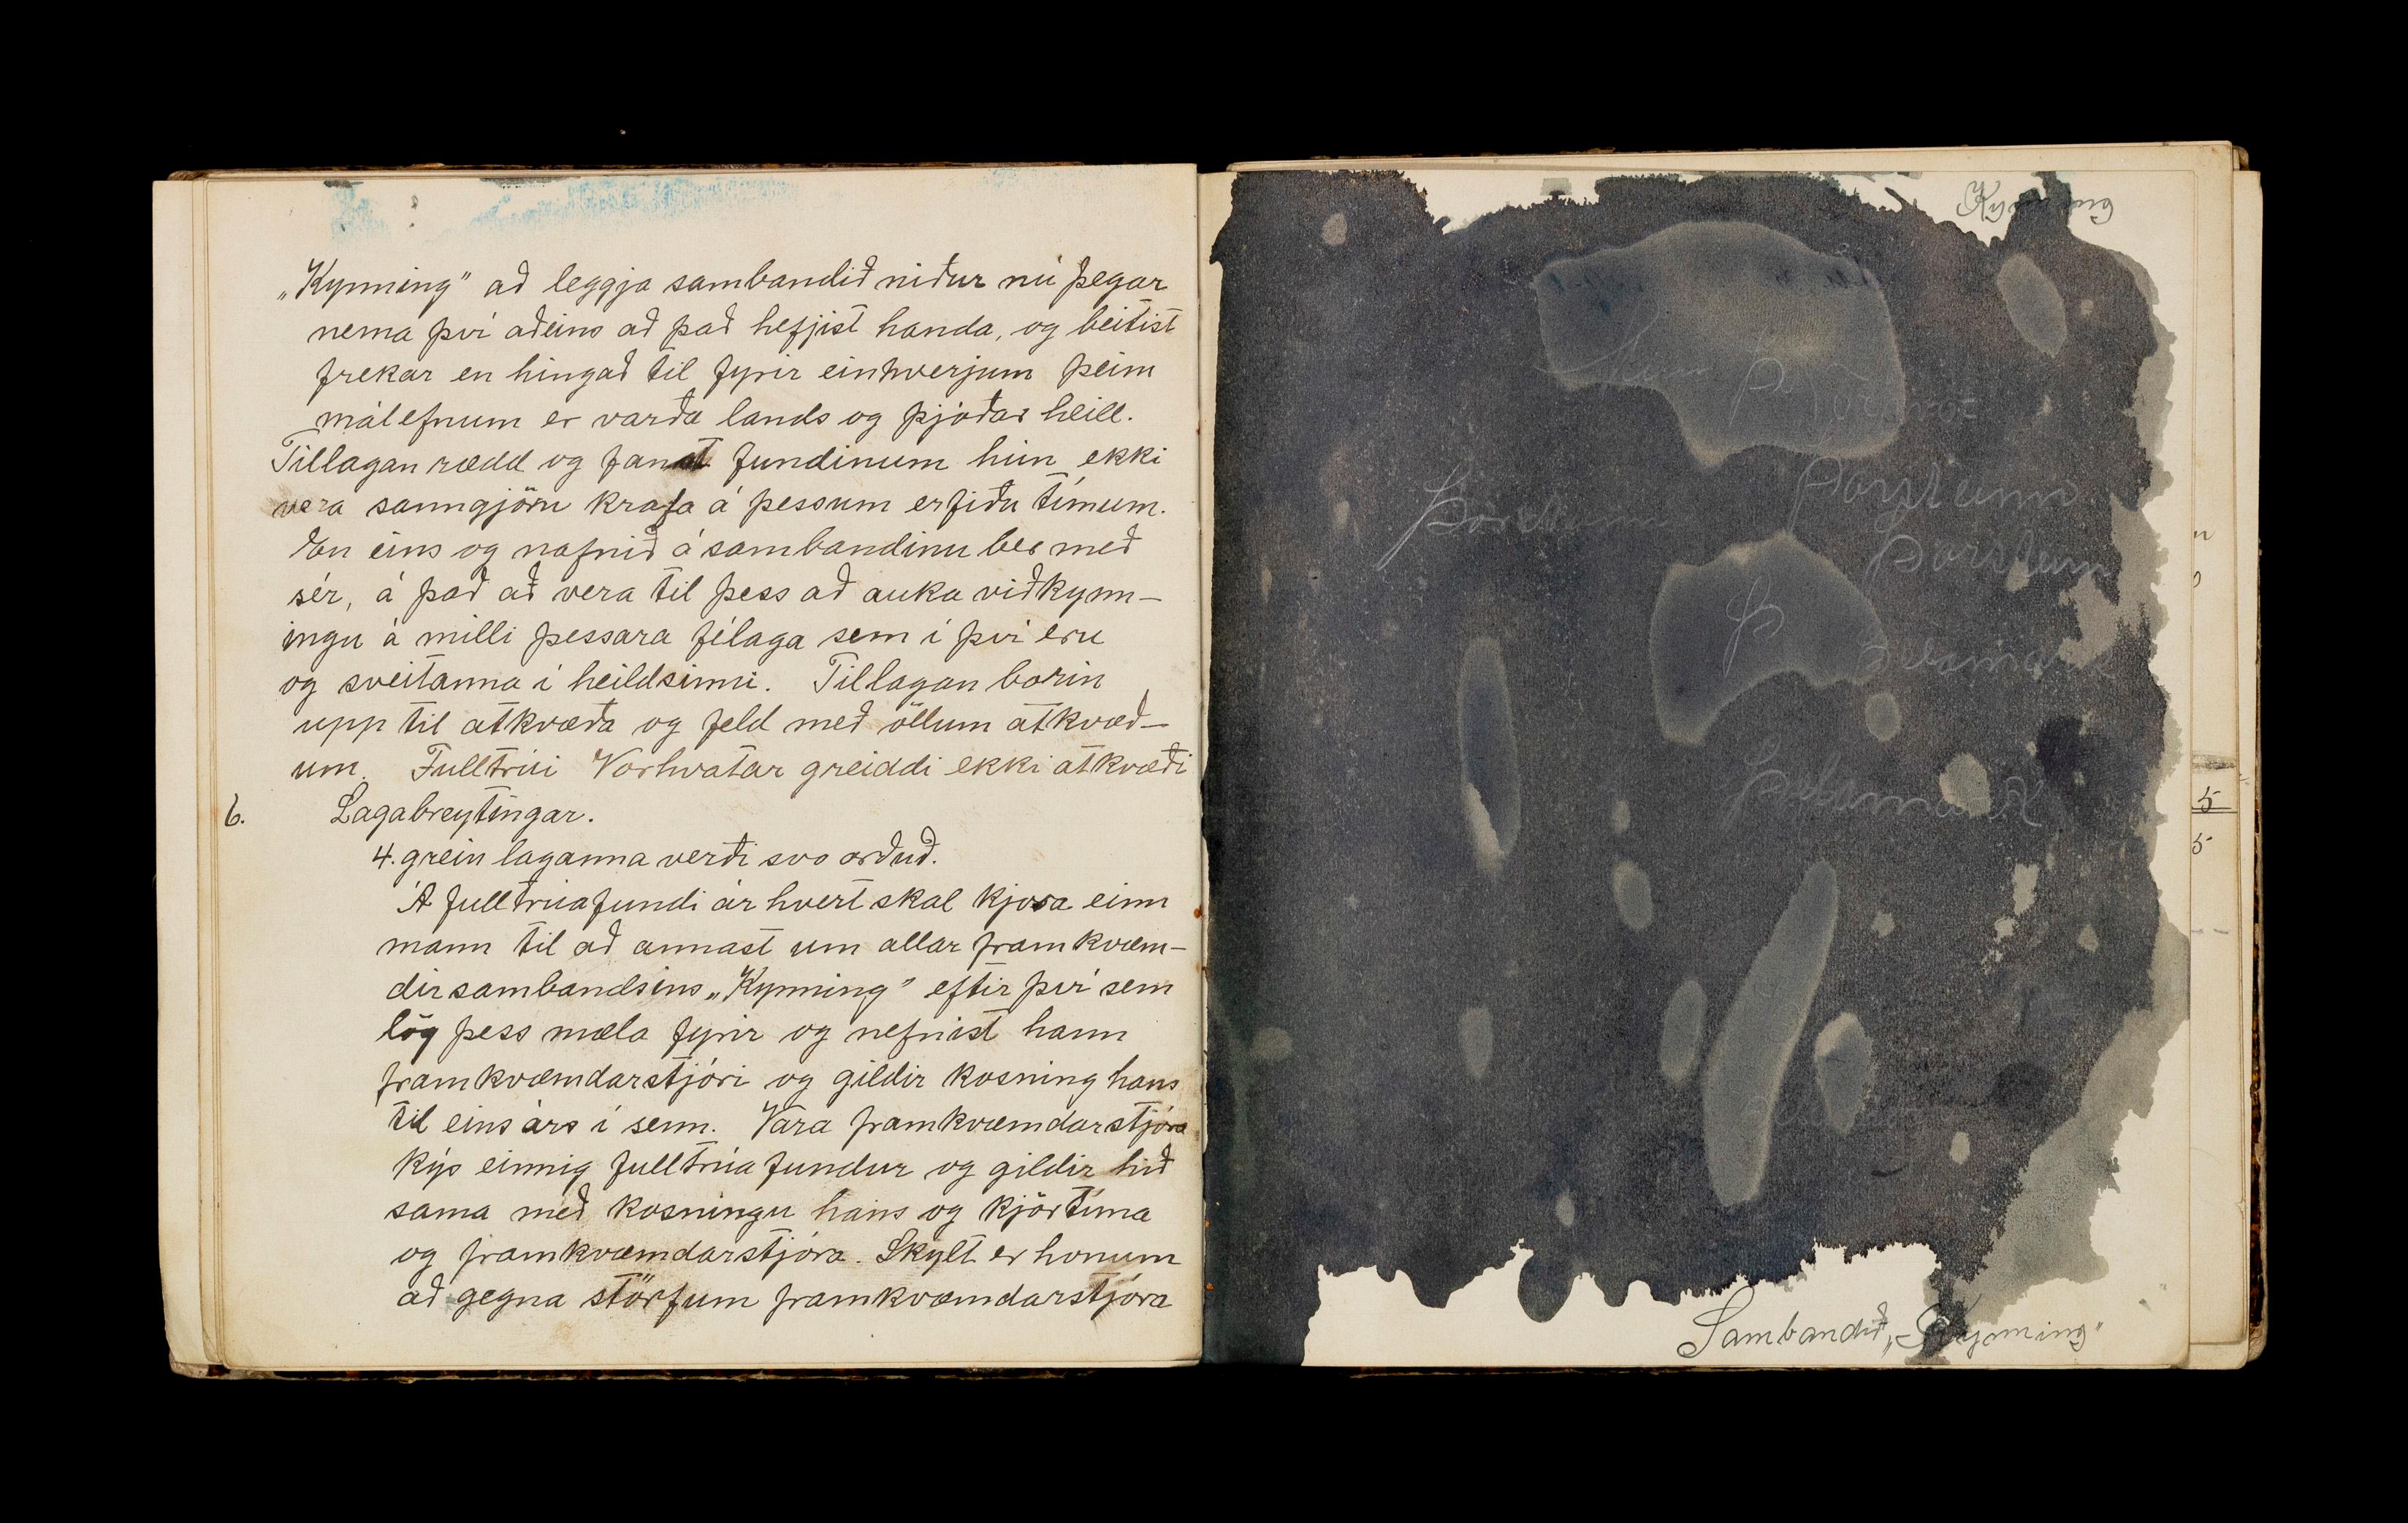 „Kynning" að leggja sambandið niður nú þegar
nema því aðeins að það hefjist handa, og beitist
frekar en hingað til fyrir einhverjum þeim
málefnum er varða lands og þjóðar heill.
Tillagan rædd og fanst fundinum hún ekki
vera sanngjörn krafa á þessum erfiðu tímum.
En eins og nafnið á sambandinu ber með
sér, á það að vera til þess að auka viðkynn-
ingu á milli þessara félaga sem í því eru
og sveitanna í heildsinni. Tillagan borin
upp til atkvæða og feld með öllum atkvæð-
um. Fulltrúi Vorhvatar greiddi ekki atkvæði
6. Lagabreytingar.
4. grein laganna verði svo orðuð.
Á fulltrúafundi ár hvert skal kjosa einn
mann til að annast um allar framkvæm-
dir sambandsins „Kynning" eftir því sem
lög þess mæla fyrir og nefnist hann
framkvæmdarstjóri og gildir kosning hans
til eins árs í senn. Vara framkvæmdarstjóra
kýs einnig fulltrúafundur og gildir hið
sama með kosningu hans og kjörtíma
og framkvæmdarstjóra. Skylt er honum
að gegna störfum framkvæmdarstjóra
Kynning
Þorsteinn
Þorsteinn
Þorstein
Þ
Sambandið „Kynning"
5
5